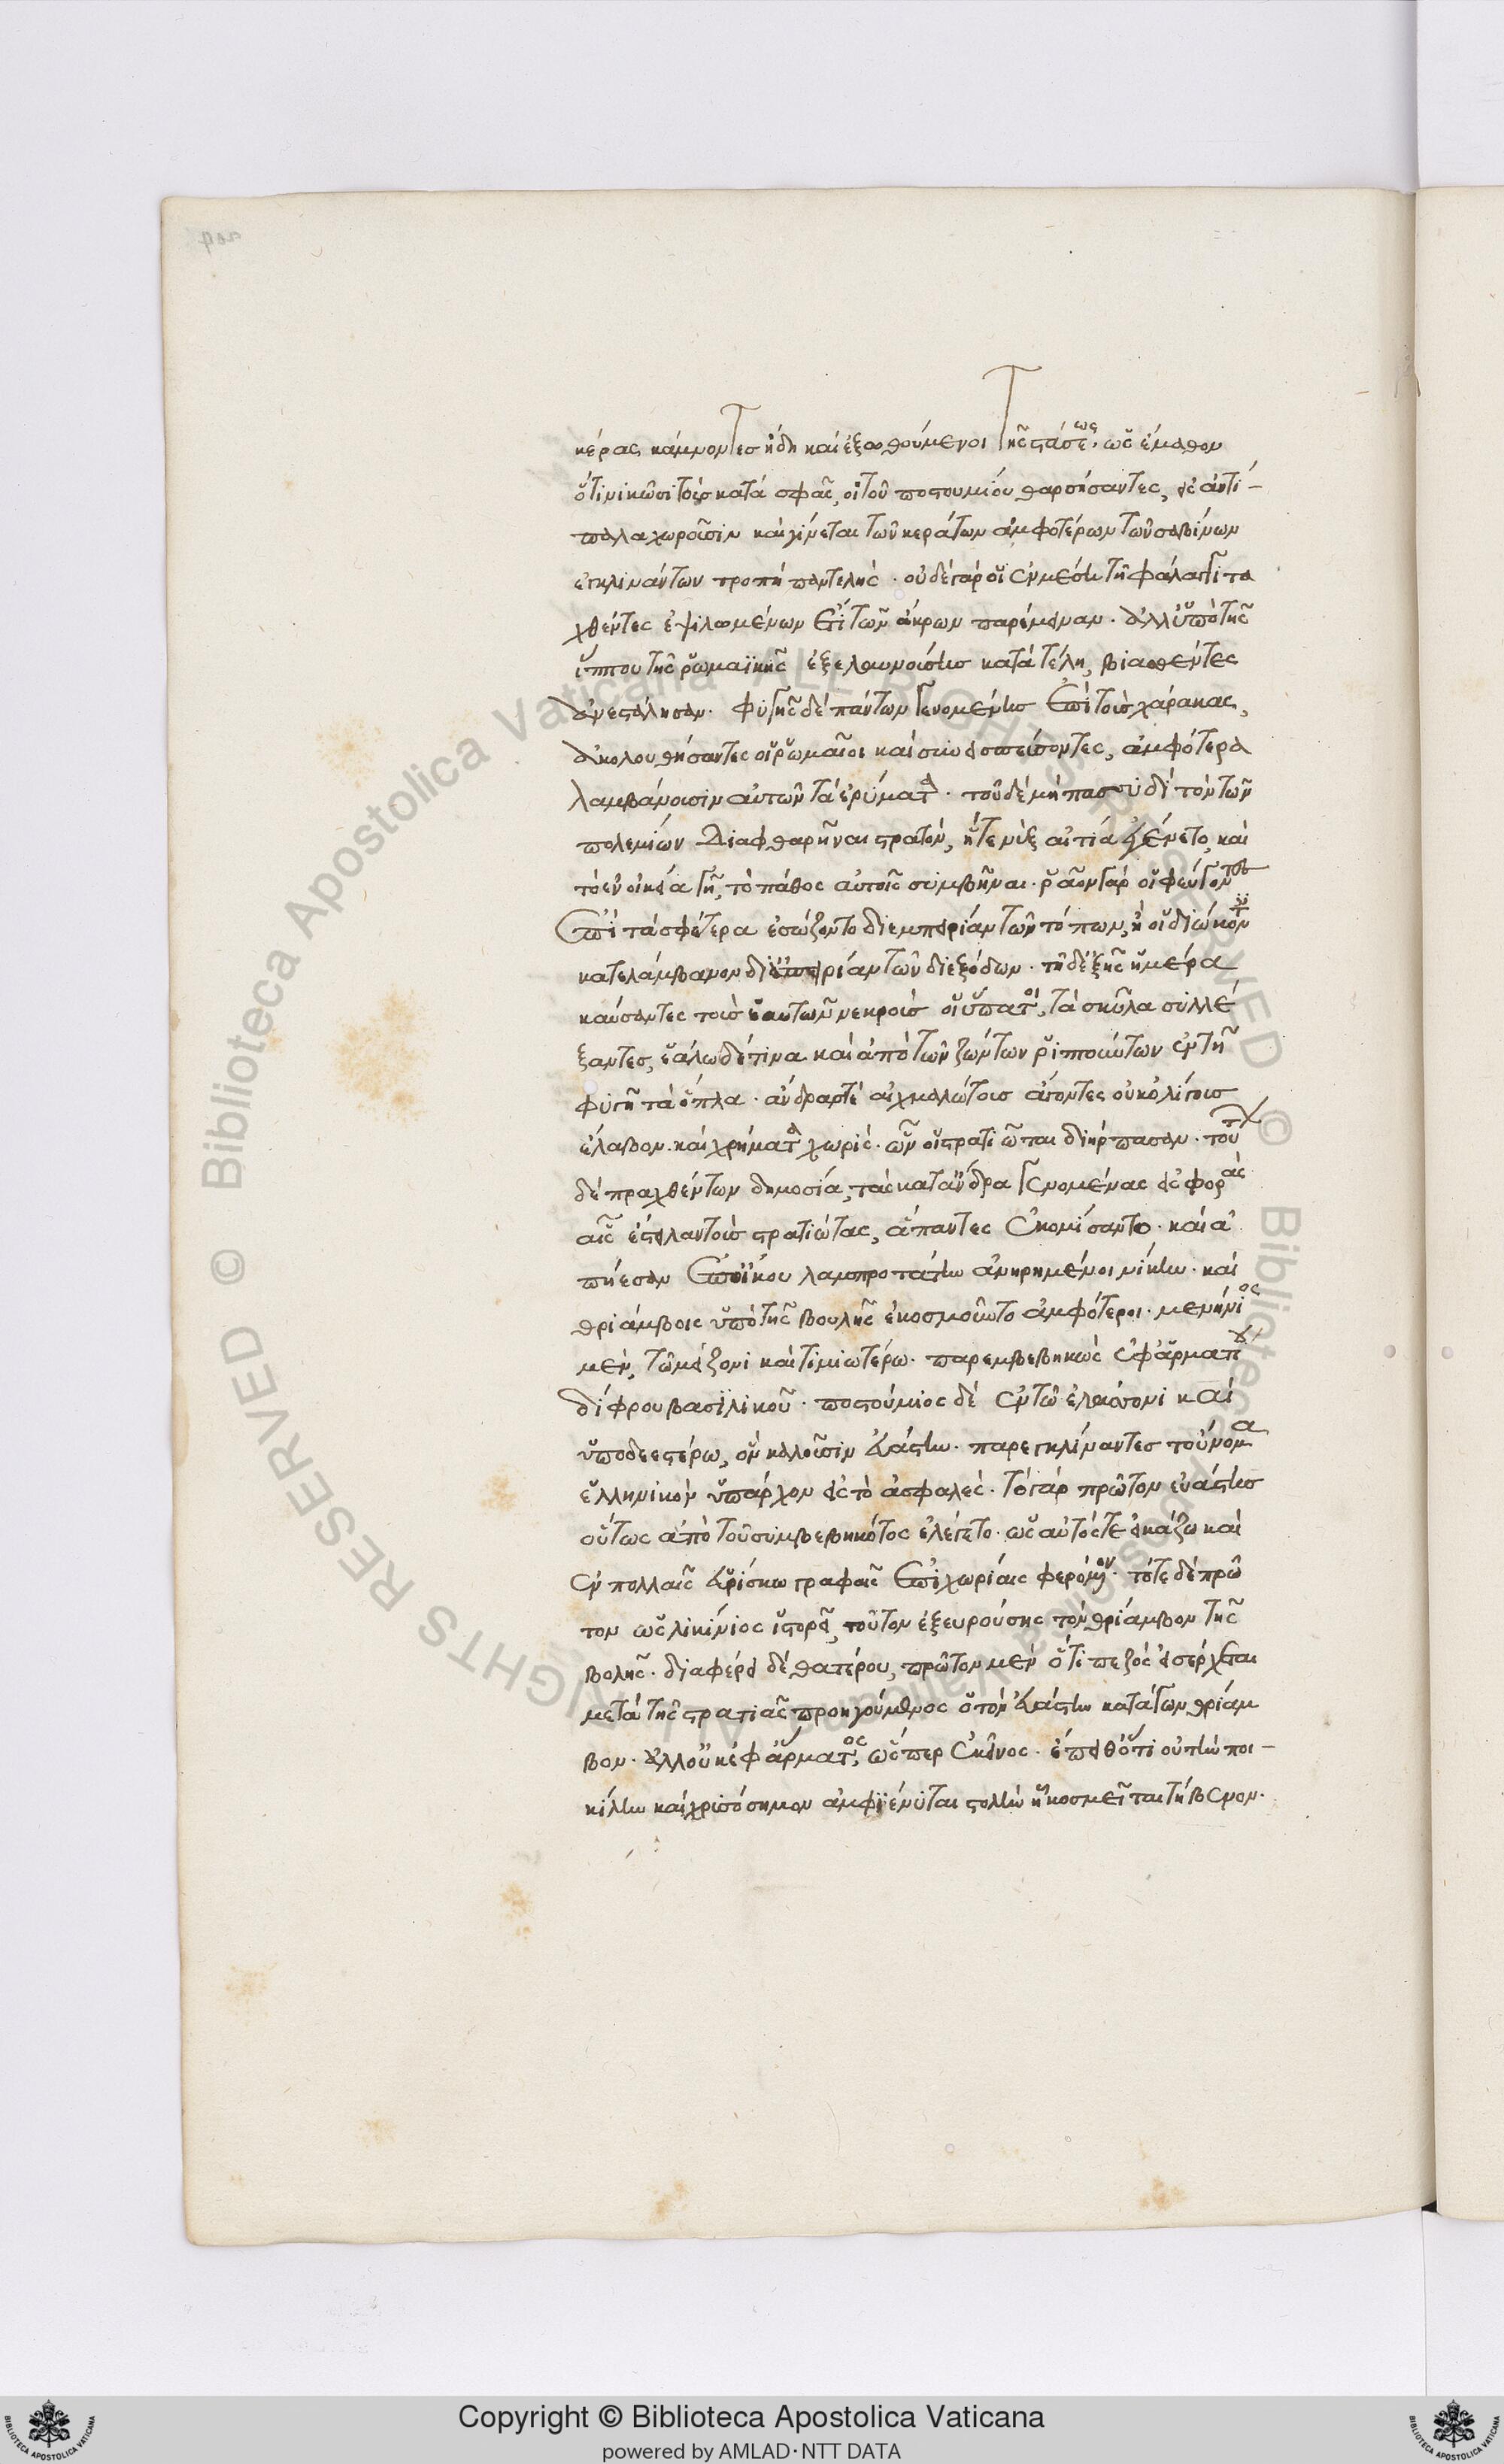 κέρας κάμνοντες ἤδη καὶ ἐξωθούμενοι τῆς στάσεως, ὡς ἔμαθον
ὅτι νικῶσι τοὺς κατὰ σφᾶς, οἱ τοῦ ποστουμίου θαρσήσαντες, εἰς ἀντί-
παλα χωροῦσιν καὶ γίνεται τῶν κεράτων ἀμφοτέρων τῶν σαβίνων
ἐγκλινάντων τροπὴ παντελής. οὐδὲ γὰρ οἱ ἐν μέσῃ τῇ φάλαγγι τα
χθέντες ἐψιλωμένων ἔτι τῶν ἄκρων παρέμειναν. ἀλλ' ὑπὸ τῆς
ἵππου τῆς ῥωμαϊκῆς ἐξελαυνούσης κατὰ τέλη, βιασθέντες
ἀνεστάλησαν. φυγῆς δὲ πάντων γενομένης ἐπὶ τοὺς χάρακας,
ἀκολουθήσαντες οἱ ῥωμαῖοι καὶ συνεισπεσόντες, ἀμφότερα
λαμβάνουσιν αὐτῶν τὰ ἐρύματα. τοῦ δὲ μὴ πασσυδὶ τὸν τῶν
πολεμίων διαφθαρῆναι στρατόν, ἥ τε νὺξ αἰτία ἐγένετο, καὶ
τὸ ἐν οἰκεία γῆ, τὸ πάθος αὐτοῖς συμβῆναι. ῥᾶον γὰρ οἱ φεύγοντες
ἐπὶ τὰ σφέτερα ἐσώζοντο δι' ἐμπειρίαν τῶν τόπων, ἢ οἱ διώκοντες
κατελάμβανον δι' ἀπειρίαν τῶν διεξόδων. τῇ δ' ἑξῆς ἡμέρα
καύσαντες τοὺς ἑαυτῶν νεκροὺς οἱ ὕπατοι, τὰ σκῦλα συλλέ
ξαντες, ἑάλω δέ τινα καὶ ἀπὸ τῶν ζώντων ῥιπτούντων ἐν τῇ
φυγῇ τὰ ὅπλα. ἄνδρας τέ αἰχμαλώτους ἄγοντες οὐκ ὀλίγους
ἔλαβον. καὶ χρήματα χωρίς. ὧν οἱ στρατιῶται διήρπασαν. τούτων
δὲ πραχθέντων δημοσία, τὰς κατ' ἄνδρα γενομένας εἰσφορὰς
αἷς ἔστειλαν τοὺς στρατιώτας, ἅπαντες ἐκομίσαντο. καὶ ἀ
πῄεσαν ἐπ' οἴκου λαμπροτάτην ἀνῃρημένοι νίκην. καὶ
θριάμβοις ὑπὸ τῆς βουλῆς ἐκοσμοῦντο ἀμφότεροι. μενήνιος
μὲν, τῷ μείζονι καὶ τιμιωτέρω. παρεμβεβηκὼς ἐφ' ἅρματι
δίφρου βασιλικοῦ. ποστούμιος δὲ ἐν τῷ ἐλάττονι καὶ
ὑποδεεστέρω, ὃν καλοῦσιν εὐάστην. παρεγκλίναντες τοὔνομα
ἑλληνικὸν ὑπάρχον εἰς τὸ ἀσφαλές. τὸ γὰρ πρῶτον εὐάστης
οὕτως ἀπὸ τοῦ συμβεβηκότος ἐλέγετο. ὡς αὐτός τε εἰκάζω καὶ
ἐν πολλαῖς εὑρίσκω γραφαῖς ἐπιχωρίαις φερόμενον. τότε δὲ πρῶ
τον ὡς λικίνιος ἱστορεῖ, τοῦτον ἐξευρούσης τὸν θρίαμβον τῆς
βολῆς. διαφέρει δὲ θατέρου, πρῶτον μὲν ὅτι πεζὸς εἰσέρχεται
μετὰ τῆς στρατιᾶς προηγούμενος ὁ τὸν εὐάστην κατάγων θρίαμ
βον. ἀλλ' οὐκ ἐφ' ἅρματος, ὥσπερ ἐκεῖνος. ἔπειθ' ὅτι οὐ τὴν ποι-
κίλην καὶ χρυσόσημον ἀμφιέννυται στολὴν ᾗ κοσμεῖται τήβενον.